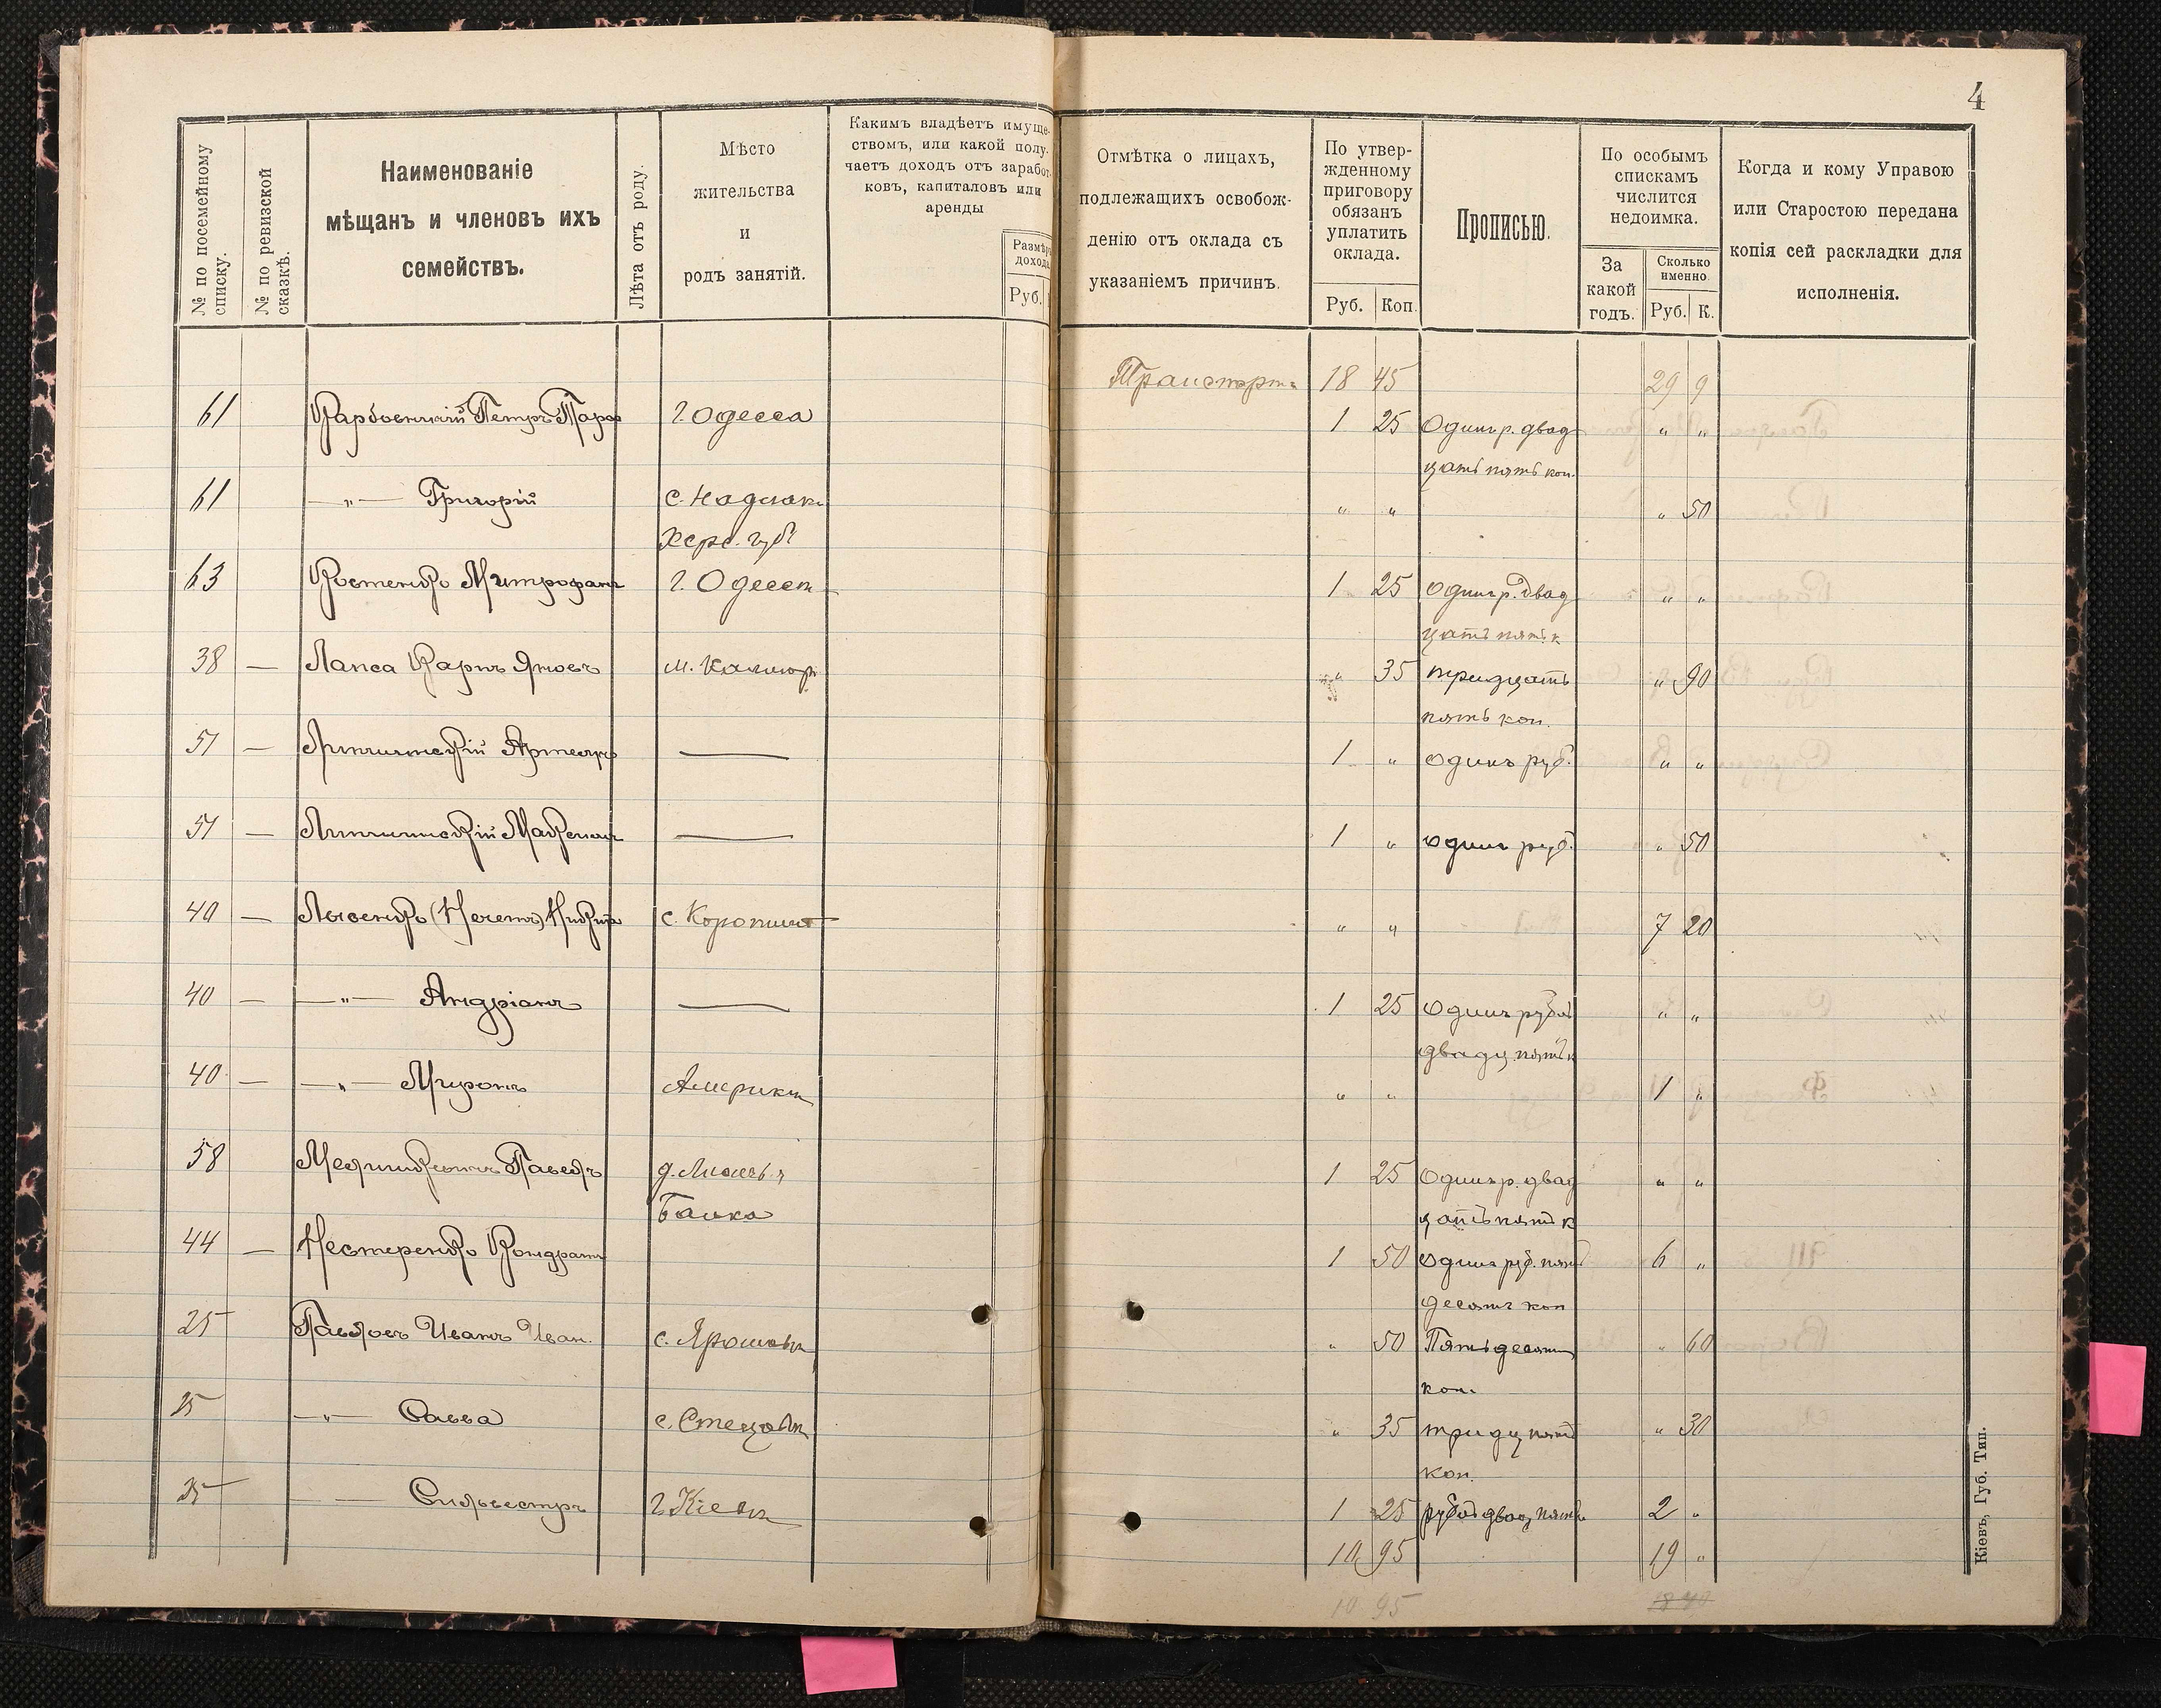 4
№ по посемейному списку.
№ по ревизской сказкѣ.
Наименованіе
мѣщанъ и членовъ ихъ
семействъ.
Лѣта отъ роду.
Мѣсто
жительства
и
родъ занятій.
Какимъ владѣетъ имуще-
ствомъ, или какой полу-
чаетъ доходъ отъ заработ-
ковъ, капиталовъ или
аренды
Размѣръ
дохода
Руб.
Отмѣтка о лицахъ,
подлежащихъ освобож-
денію отъ оклада съ
указаніемъ причинъ.
По утвер-
жденному
приговору
обязанъ
уплатить
оклада.
Руб. Коп.
Прописью.
По особымъ
спискамъ
числится
недоимка.
За
какой
годъ.
Сколько
именно.
Руб. К.
Когда и кому Управою
или Старостою передана
копія сей раскладки для
исполненія.
Транспортъ 18 45 29 9
61 Петръ г. Одесса 1 25 Одинъ р. двад „ „
цать пять коп.
61 — „ — Григорій с. „ „ „ 50
Херс. губ
63 Костенко Митрофанъ г. Одесса 1 25 Одинъ р. двад „ „
цать пять к
38 — Лапса Карпъ м. „ 35 тридцать „ 90
пять коп.
51 — Артемъ — 1 „ одинъ руб. „ „
51 — — 1 „ одинъ руб. „ 50
40 — Лысенко Никита с. „ „ 7 20
40 — — „ — Андріанъ — 1 25 Одинъ рубль „ „
двадц. пять к
40 — — „ — Миронъ Америка „ „ 1 „
58 Павелъ д. 1 25 Одинъ р. двад „ „
Балка цать пять к
44 — Нестеренко Кондратъ 1 50 одинъ руб. пять 6 „
десятъ коп
25 Павловъ Иванъ Иван. с. „ 50 Пятьдесятъ „ 60
коп.
25 — „ — Савва с. Стецовка „ 35 тридц. пять „ 30
коп.
25 — Сильвестръ г. Кіевъ 1 25 рубль двадц. пять 2 „
10 95 19 „
10 95 18 40
Кіевъ, Губ. Тип.